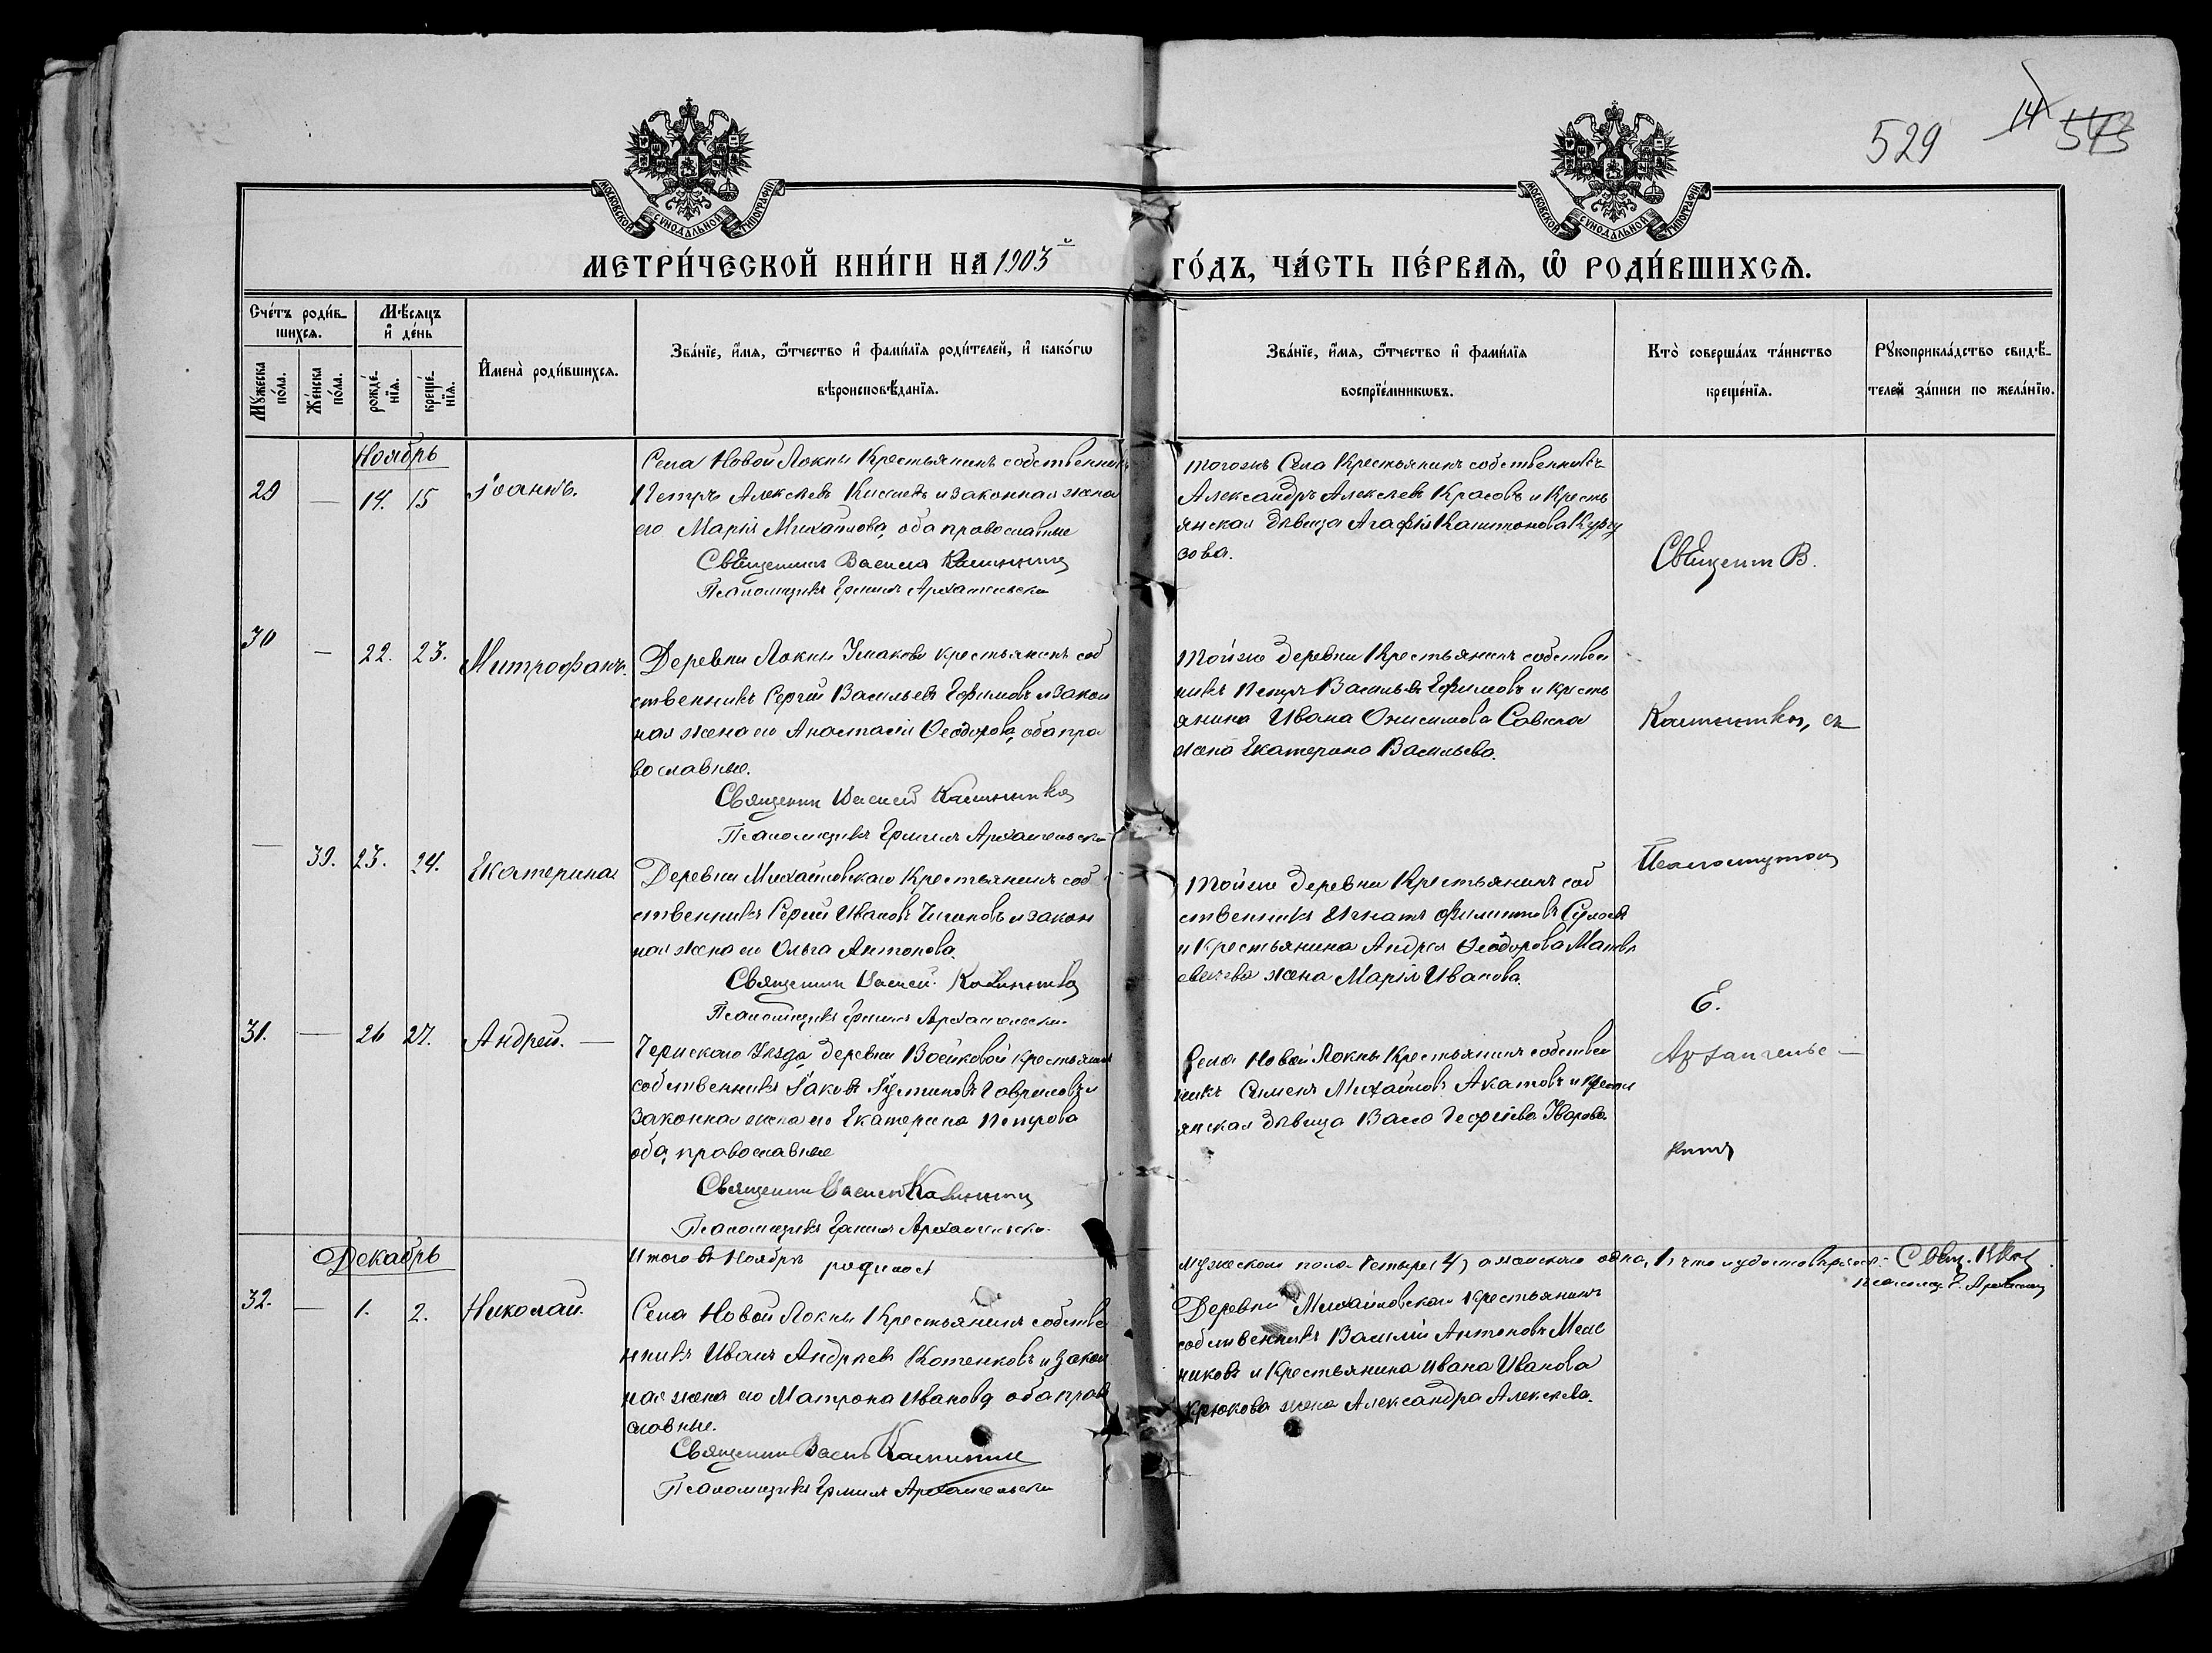 529 14 543
МОСКОВСКОЙ СУНОДАЛЬНОЙ ТИПОГРАФІИ
МОСКОВСКОЙ СУНОДАЛЬНОЙ ТИПОГРАФІИ
МЕТРИ́ЧЕСКОЙ КНИ́ГИ НА 1903й ГО́ДЪ, ЧА́СТЬ ПЕ́РВАЯ, Ѽ РОДИ́ВШИХСЯ.
Сче́тъ роди́в-
шихся.
Мѣ́сяцъ
и҆ де́нь
Мꙋ́жеска по́ла.
Же́нска по́ла.
рожде́-
нїя.
креще́-
нїя.
И҆мена̀ роди́вшихся.
Зва́нїе, и҆́мя, ѻ҆́тчество и҆ фами́лїя роди́телей, и҆ како́гѡ
вѣроисповѣ́данїя.
Зва́нїе, и҆́мя, ѻ҆́тчество и҆ фами́лїя
воспрїе́мникѡвъ.
Кто̀ соверша́лъ та́инство
креще́нїя.
Рꙋкоприкла́дство свидѣ́-
телей за́писи по жела́нїю.
Ноябрь
29 — 14. 15 Іоаннъ.
Села Новой Локны Крестьянинъ собственникъ
Петръ Алексѣевъ и законная жена
его Марія Михайлова, оба православные
Священникъ Василій Калинниковъ
Псаломщикъ Ермилъ Архангельскій
тогожъ Села Крестьянинъ собственникъ
Александръ Алексѣевъ Красовъ и Кресть
янская дѣвица Агафія Капитонова Кургу
зова.
Священ В.
30 — 22. 23. Митрофанъ.
Деревни Локны Ушаково крестьянинъ соб
ственникъ Сергій Васильевъ Ефимовъ и закон
ная жена его Анастасія Ѳеодорова, оба пра
вославные.
Священникъ Василій Калинниковъ
Псаломщикъ Ермилъ Архангельскій
тойже деревни Крестьянинъ собствен
никъ Петръ Васильевъ Ефимовъ и кресть
янина Ивана Онисимова
жена Екатерина Васильева.
Калинниковъ, съ
— 39. 23. 24. Екатерина
Деревни Михайловской Крестьянинъ соб
ственникъ Сергій Ивановъ и закон
ная жена его Ольга Антонова.
Священникъ Василій Калинниковъ
Псаломщикъ Ермилъ Архангельскій
тойже деревни Крестьянинъ соб
ственникъ Игнатъ Филипповъ
и Крестьянина Андрея Ѳеодорова Матвѣ
евичева жена Марія Иванова.
Псаломщикомъ
Е.
31. — 26 27. Андрей. —
Чернскаго Уѣзда деревни Воейковой крестьянинъ
собственникъ Іаковъ Іустиновъ Гавриловъ и
законная жена его Екатерина Петрова
оба православные
Священникъ Василій Калинниковъ
Псаломщикъ Ермилъ Архангельскій
Села Новой Локны Крестьянинъ собствен
никъ Симеонъ Михайловъ Акатовъ и Крестья
янская дѣвица Васса Георгіева Уварова
Архангельс—
кимъ
Итого въ Ноябрѣ родилось мужеского пола четыре (4) а женскаго одна, 1, что и удостовѣряемъ Свящ. В.
псаломщ. Е. Архангел
Декабрь
32. — 1. 2. Николай.
Села Новой Локны Крестьянинъ собстве
нникъ Иванъ Андреевъ Котенковъ и закон
ная жена его Матрона Иванова оба право
славные.
Священникъ Василій Калинниковъ
Псаломщикъ Ермилъ Архангельскій
Деревни Михайловской Крестьянинъ
собственникъ Василій Антоновъ Мель
никовъ и Крестьянина Ивана Иванова
Крюкова жена Александра Алексѣева.